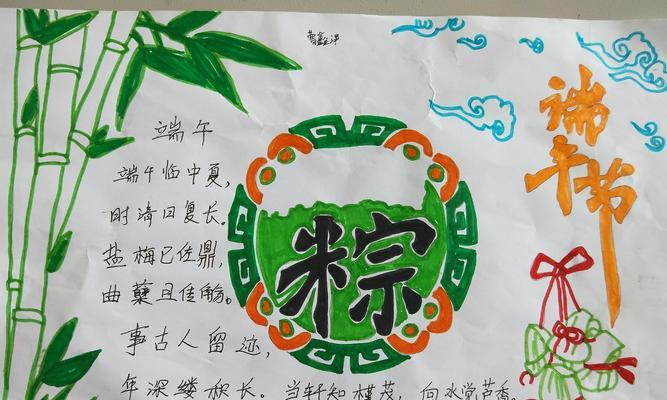 端午
端午临中夏，
时清日复长。
盐梅已佐鼎，
曲蘖且传觞。
事古人留迹，
年深缕积长。当轩知槿茂，向水觉芦香。
粽
端午节